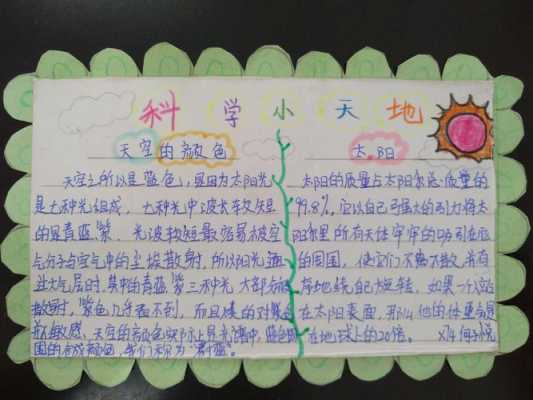 科学小天地
天空的颜色
天空之所以是蓝色,是因为太阳光
是七种光组成,七种光中波长较短
的是青蓝紫,光波较短最容易被空
气分子与空气中的尘埃散射,所以阳光通
过大气层时,其中的青蓝,紫三种光大部分被
散射,紫色几乎看不到,而且的对紫色
敏感,天空的颜色实际上是光谱中蓝色
围的合成颜色,我们称为"蔚蓝"。
太阳
太阳的质量占太阳系总质量的
99.8%,它以自己强大的引力将太
阳系里所有天体牢牢的吸引在它
的周围,使它们不离不散,井有
序地绕自己旋转,如果一个人站
在太阳表面,那么他的体重会是
在地球上的20倍。